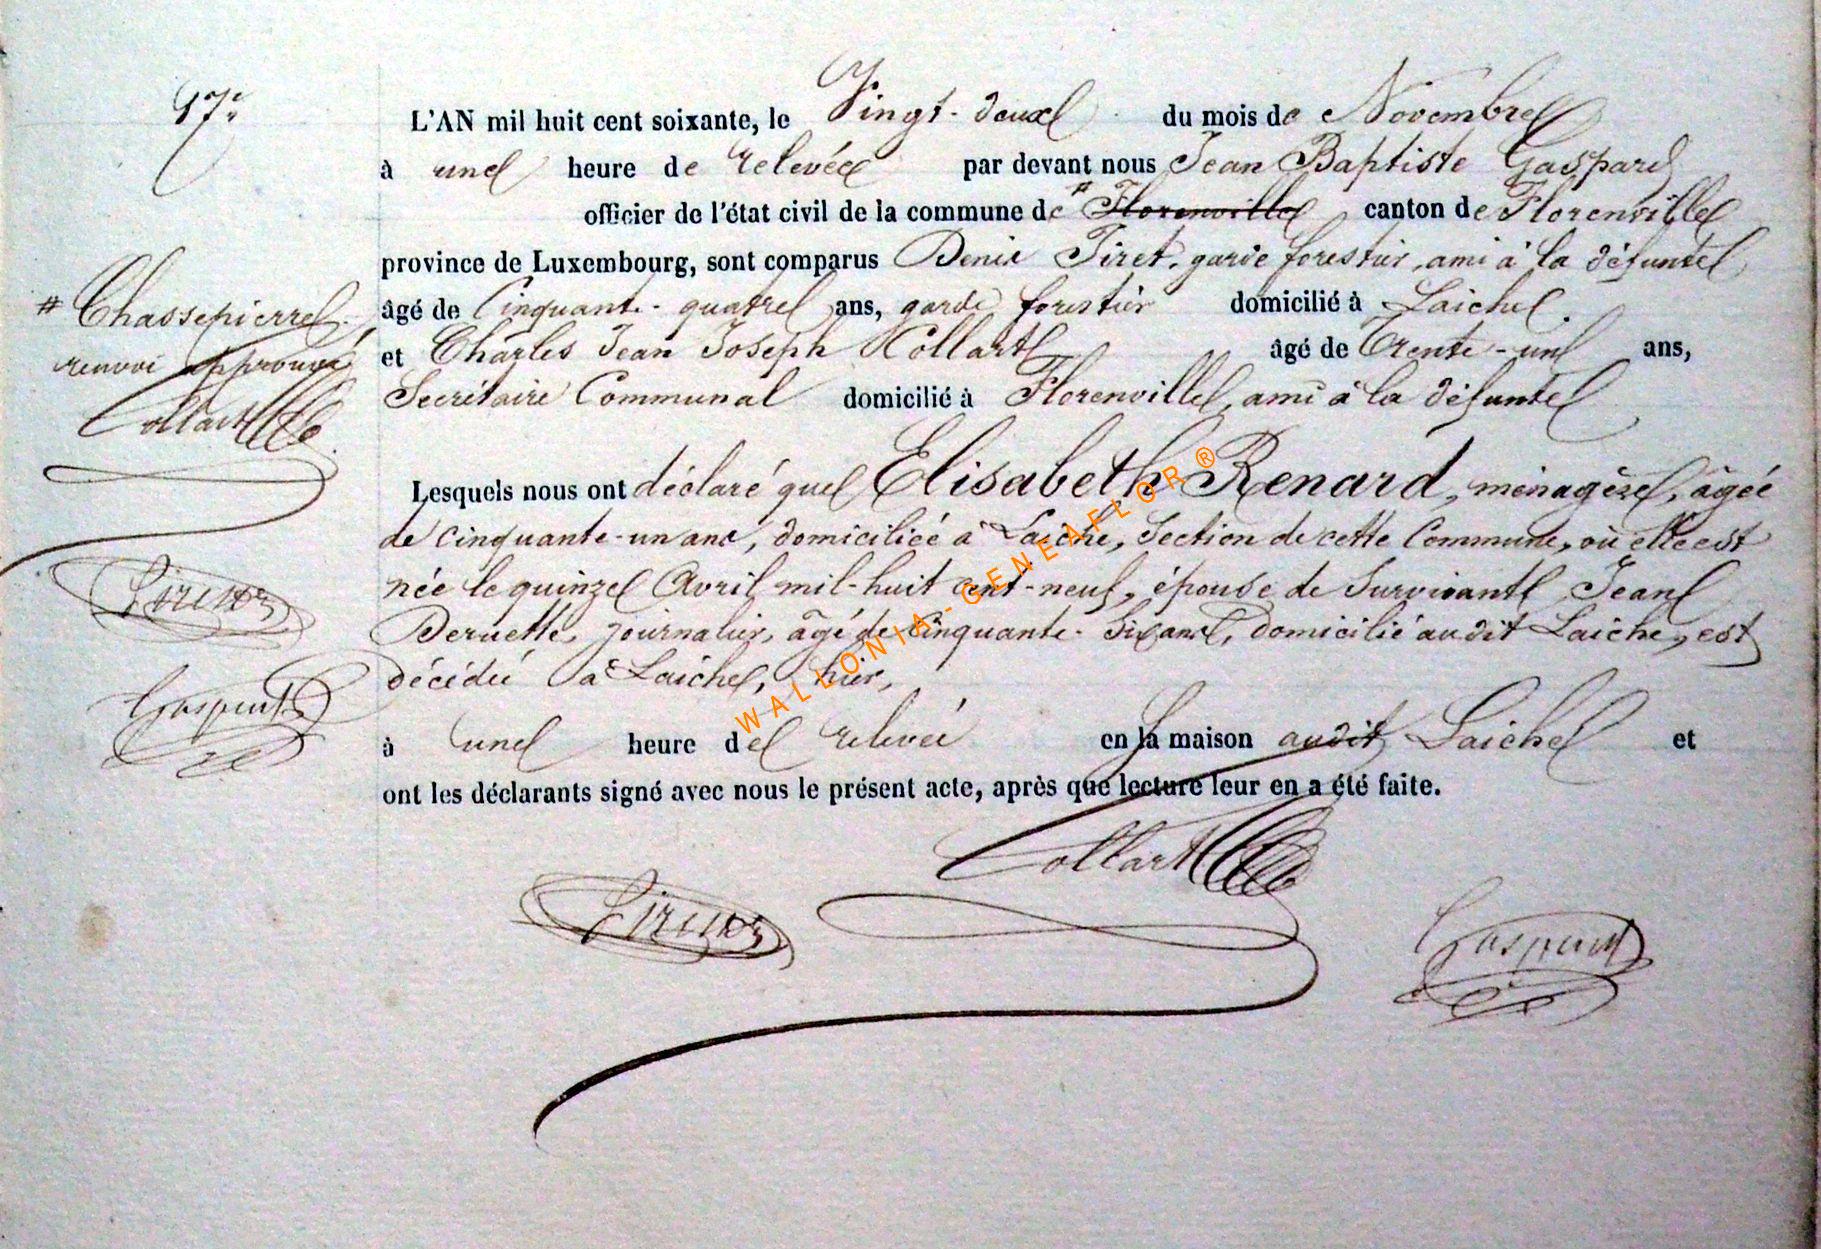 17e
L'AN mil huit cent soixante, le Vingt-deux du mois de Novembre
à une heure de relevée par devant nous Jean Baptiste Gaspard
officier de l'état civil de la commune de # Florenville canton de Florenville
province de Luxembourg, sont comparus Denis Tiret, garde forestier, ami à la défunte
âgé de Cinquante-quatre ans, garde forestier domicilié à Laiche.
et Charles Jean Joseph Collart âgé de Trente-un ans,
Secrétaire Communal domicilié à Florenville, ami à la défunte
# Chassepierre
renvoi approuvé
Collart
Gaspard
Lesquels nous ont déclaré que Elisabeth Renard, ménagère, âgée
de cinquante-un ans, domiciliée à Laiche, Section de cette Commune, où elle est
née le quinze Avril mil-huit cent-neuf, épouse de Survivante Jean
journalier, âgé de Cinquante-Six ans, domicilié au dit Laiche, est
décédée à Laiche, hier,
à une heure de relevée en la maison audit Laiche et
ont les déclarants signé avec nous le présent acte, après que lecture leur en a été faite.
Collart
Gaspard
WALLONIA-GENEAFLOR®